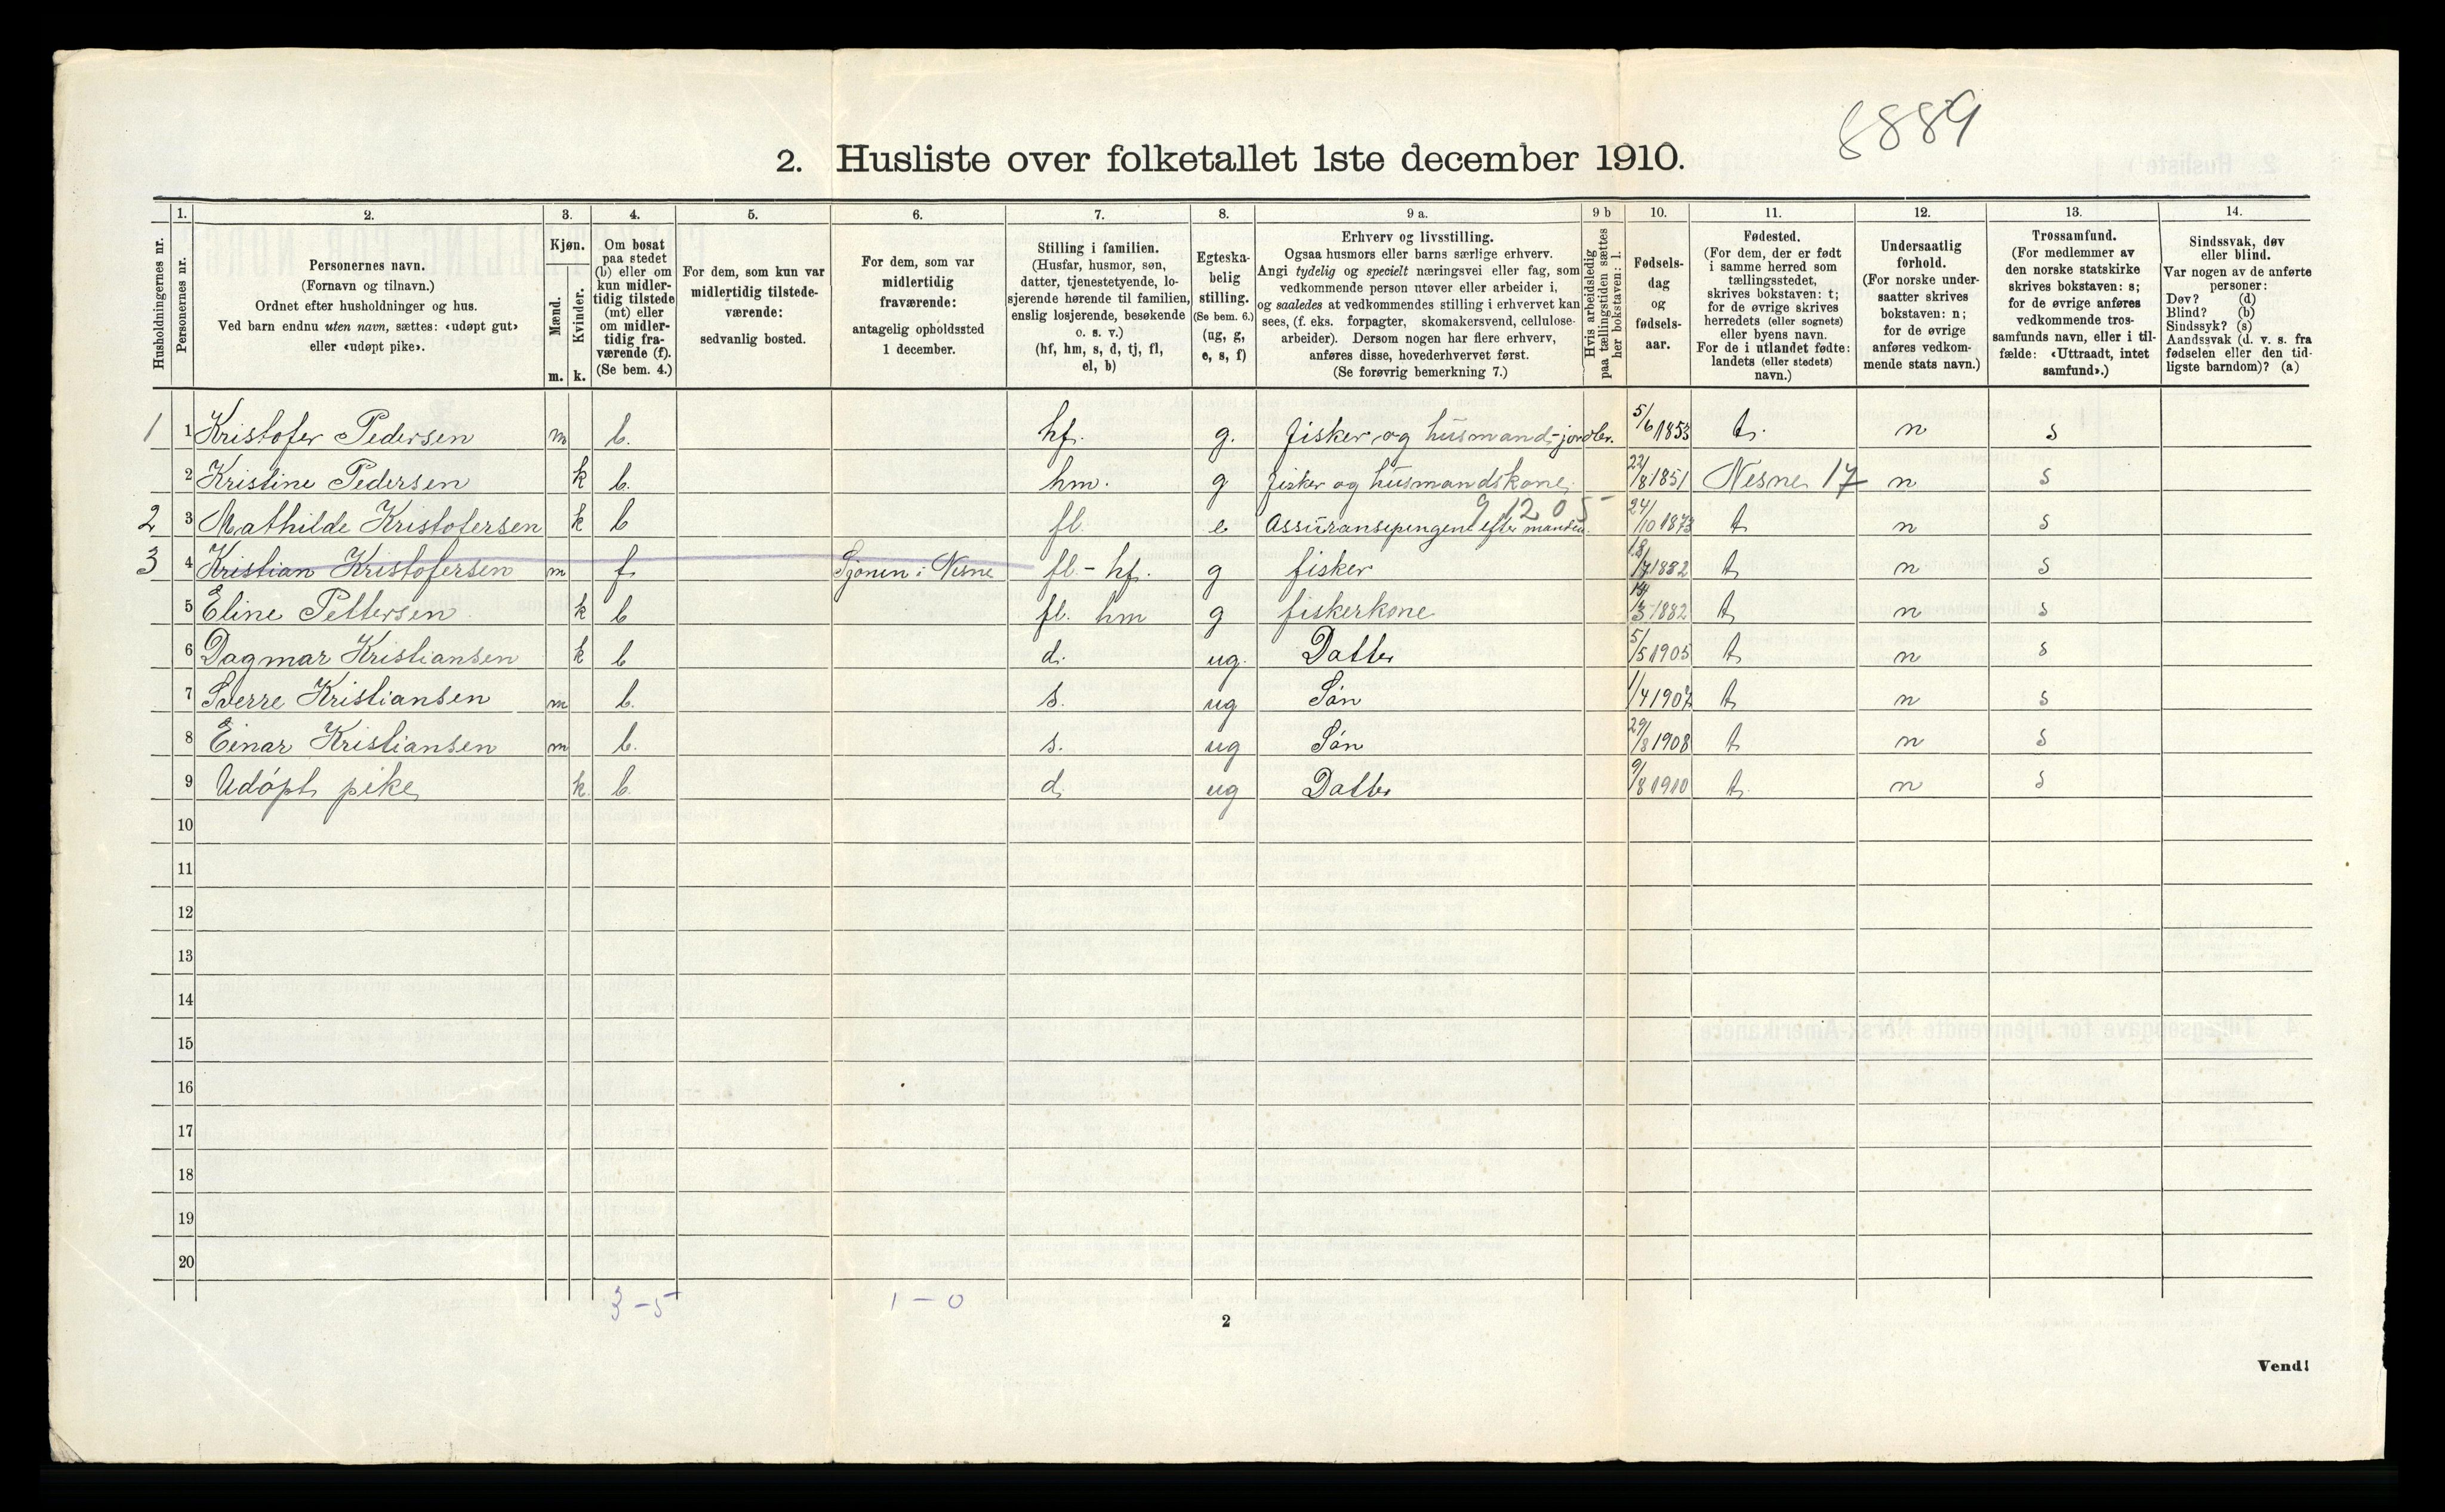 8889
2. Husliste over folketallet 1ste december 1910.
Husholdningernes nr.
1.
Personernes nr.
2.
Personernes navn.
(Fornavn og tilnavn.)
Ordnet efter husholdninger og hus.
Ved barn endnu uten navn, sættes: «udøpt gut»
eller «udøpt pike».
3.
Kjøn.
Mænd.
Kvinder.
m. k.
4.
Om bosat
paa stedet
(b) eller om
kun midler-
tidig tilstede
(mt) eller
om midler-
tidig fra-
værende (f).
(Se bem. 4.)
5.
For dem, som kun var
midlertidig tilstede-
værende:
sedvanlig bosted.
6.
For dem, som var
midlertidig
fraværende:
antagelig opholdssted
1 december.
7.
Stilling i familien.
(Husfar, husmor, søn,
datter, tjenestetyende, lo-
sjerende hørende til familien,
enslig losjerende, besøkende
o. s. v.)
(hf, hm, s, d, tj, fl,
el, b)
8.
Egteska-
belig
stilling.
(Se bem. 6.)
(ug, g,
e, s, f)
9 a.
Erhverv og livsstilling.
Ogsaa husmors eller barns særlige erhverv.
Angi tydelig og specielt næringsvei eller fag, som
vedkommende person utøver eller arbeider i,
og saaledes at vedkommendes stilling i erhvervet kan
sees, (f. eks. forpagter, skomakersvend, cellulose-
arbeider). Dersom nogen har flere erhverv,
anføres disse, hovederhvervet først.
(Se forøvrig bemerkning 7.)
9 b
Hvis arbeidsledig
paa tællingstiden sættes
her bokstaven: l.
10.
Fødsels-
dag
og
fødsels-
aar.
11.
Fødested.
(For dem, der er født
i samme herred som
tællingsstedet,
skrives bokstaven: t;
for de øvrige skrives
herredets (eller sognets)
eller byens navn.
For de i utlandet fødte:
landets (eller stedets)
navn.)
12.
Undersaatlig
forhold.
(For norske under-
saatter skrives
bokstaven: n;
for de øvrige
anføres vedkom-
mende stats navn.)
13.
Trossamfund.
(For medlemmer av
den norske statskirke
skrives bokstaven: s;
for de øvrige anføres
vedkommende tros-
samfunds navn, eller i til-
fælde: «Uttraadt, intet
samfund».)
14.
Sindssvak, døv
eller blind.
Var nogen av de anførte
personer:
Døv? (d)
Blind? (b)
Sindssyk? (s)
Aandssvak (d. v. s. fra
fødselen eller den tid-
ligste barndom)? (a)
1 1 Kristofer Pedersen m b. hf. g. fisker og husmand-jordbr. 5/6 1853 t. n s
2 Kristine Pedersen k b. hm. g fisker og husmandskone 22/8 1851 Nesne 17 n s
9 12 05
2 3 Mathilde Kristofersen k b fl. e Assüransepengene efter manden 24/10 1873 t n s
3 4 Kristian Kristofersen m f Sjonen i Nesne fl. - hf. g fisker 18/7 1882 t n s
5 Eline Pettersen k b fl. hm g fiskerkone 1882 t n s
6 Dagmar Kristiansen k b d. ug. Datter 5/5 1905 t n s
7 Sverre Kristiansen m b. s. ug Søn 1/4 1907 t n s
8 Einar Kristiansen m b. s. ug Søn 29/8 1908 t n s
9 Udøpt pike k. b. d. ug Datter 9/8 1910 t. n s
10
11
12
13
14
15
16
17
18
19
20
3 - 5 1 - 0
2
Vend!